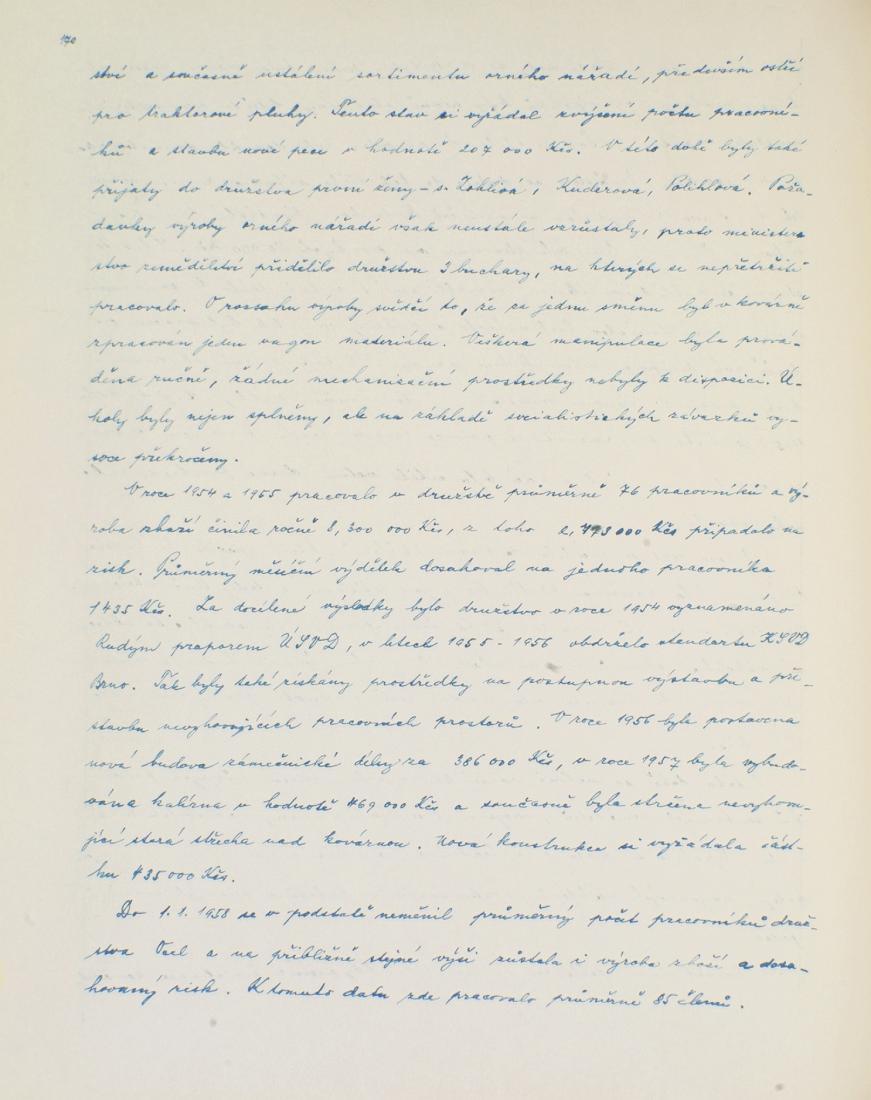 170
ství a současně ustálení sortimentu orného nářadí, především ostří
pro traktorové pluhy. Tento stav si vyžádal zvýšení počtu pracovní-
ků a stavbu nové pece v hodnotě 207 000 Kčs. V této době byly také
přijaty do družstva první ženy - s. Kuděrová, Polihlová. Poža-
davky výroby orného nářadí však neustále vzrůstaly, proto minister
stvo zemědělství přidělilo družstvu 3 buchary, na kterých se nepřetržitě
pracovalo. O rozsahu výroby svědčí to, že za jednu směnu byl v kovárně
zpracován jeden vagon materiálu. Veškerá manipulace byla prová-
děna ručně, žádné mechanisační prostředky nebyly k disposici. Ú-
koly byly nejen splněny, ale na základě socialistických závazků vy-
soce překročeny.
V roce 1954 a 1955 pracovalo v družstvě průměrně 76 pracovníků a vý-
roba zboží činila ročně 8,300 000 Kčs, z toho připadalo na
zisk. Průměrný měsíční výdělek dosahoval na jednoho pracovníka
1435 Kčs. Za docílené výsledky bylo družstvo v roce 1954 vyznamenáno
Rudým praporem ÚSVD, v letech 1955 - 1956 obdrželo standartu KSVD
Brno. Tak byly také získány prostředky na postupnou výstavbu a pří-
stavbu nevyhovujících pracovních prostorů. V roce 1956 byla postavena
nová budova zámečnické dílny za 386 000 Kčs, v roce 1957 byla vybudo-
vána kalírna v hodnotě 469 000 Kčs a současně byla stržena nevyhovu-
jící stará střecha nad kovárnou. Nová konstrukce si vyžádala část-
ku 435 000 Kčs.
Do 1.1. 1958 se v podstatě neměnil průměrný počet pracovníků druž-
stva Ocel a na přibližně stejné výši zůstala i výroba zboží a dosa-
hovaný zisk. K tomuto datu zde pracovalo průměrně 85 členů.